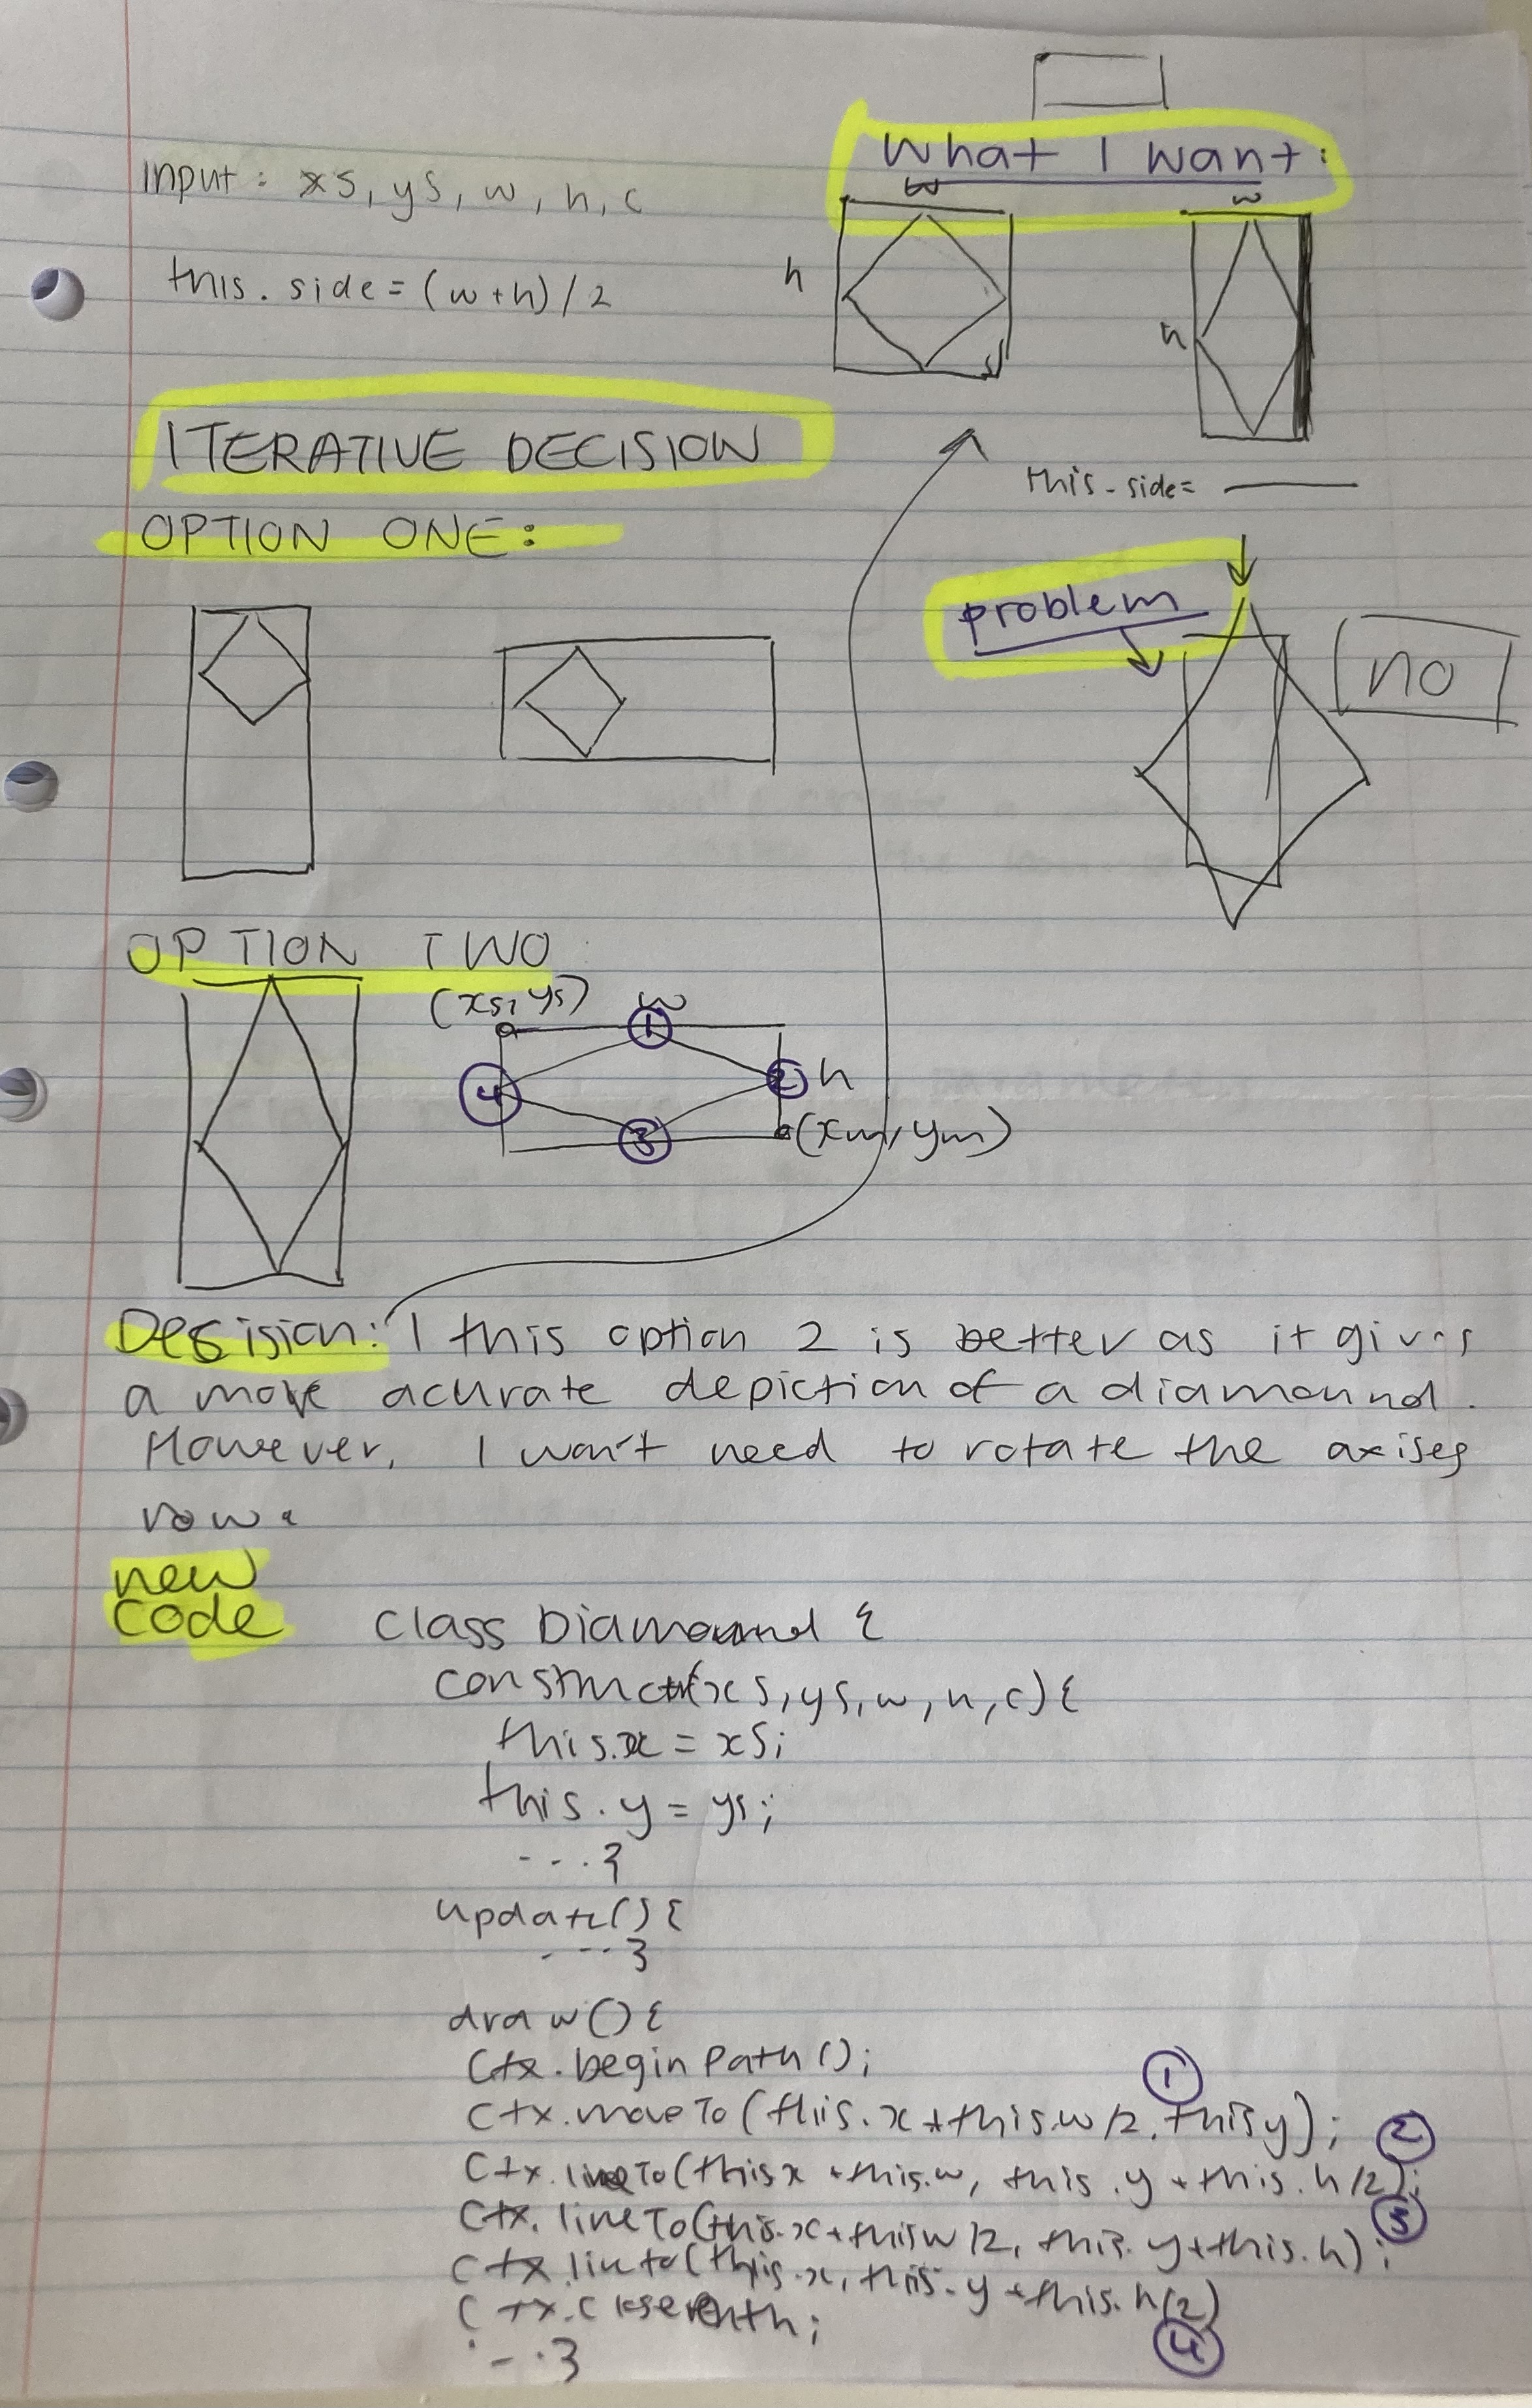 What I want:
input: xs, ys, w, h, c
w
w
h
this.side = (w+h)/2
h
ITERATIVE DECISION
this.side= ___
OPTION ONE:
problem
no
OPTION TWO
(xs, ys)
w
1
2
h
4
3
(xm, ym)
Decision: I this option 2 is better as it gives
a more acurate depiction of a diamound.
However, I won't need to rotate the axises
now.
new
code
class Diamound {
(xs, ys, w, h, c) {
this.x = xs;
this.y = ys;
...}
update() {
....}
draw() {
ctx.beginPath();
1
ctx.moveTo(this.x+this.w/2, this.y);
2
ctx.lineTo(this.x+this.w, this.y+this.h/2);
3
ctx.lineTo(this.x+this.w/2, this.y+this.h);
ctx.lineto(this.x, this.y+this.h/2)
ctx.closePath;
4
...}